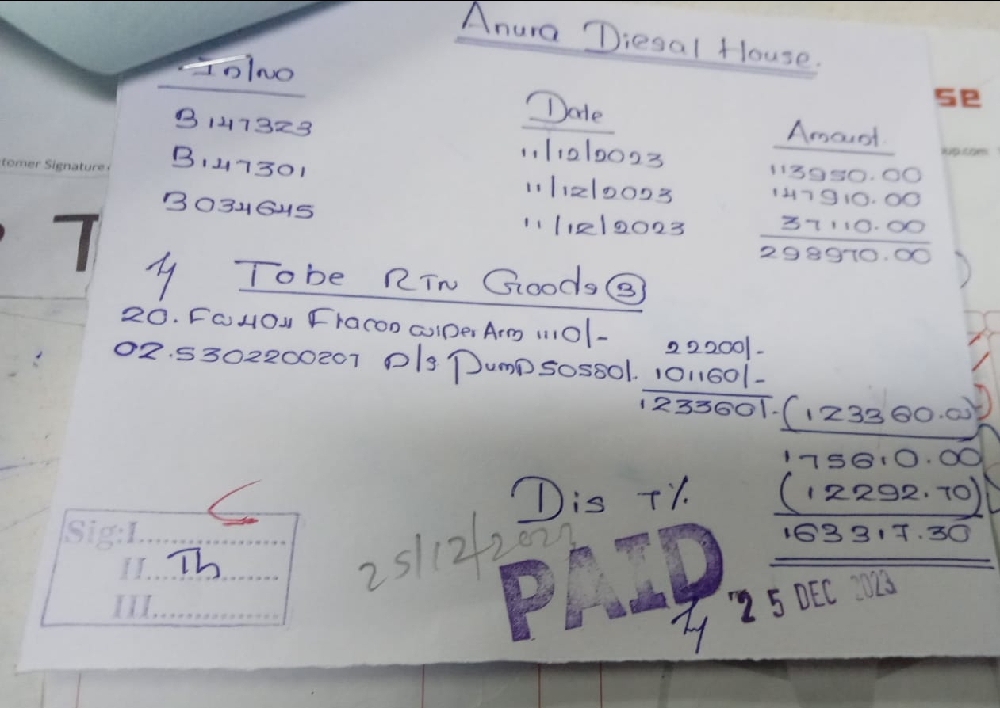 Anura Diesal House.
In/No Date Amount.
B147323 11/12/2023 113950.00
B147301 11/12/2023 147910.00
B034645 11/12/2023 37110.00
298970.00
To be RTN Goods (3)
20. Fracon wiper Arm 1110/- 22200/-
02. S302200201 P/s Pump 50580/. 101160/-
123360/- (123360.00)
175610.00
Dis 7% (12292.70)
163317.30
25/12/2023
PAID
25 DEC 2023
Sig:I
II Th
III
tomer Signature
se
up.com
T